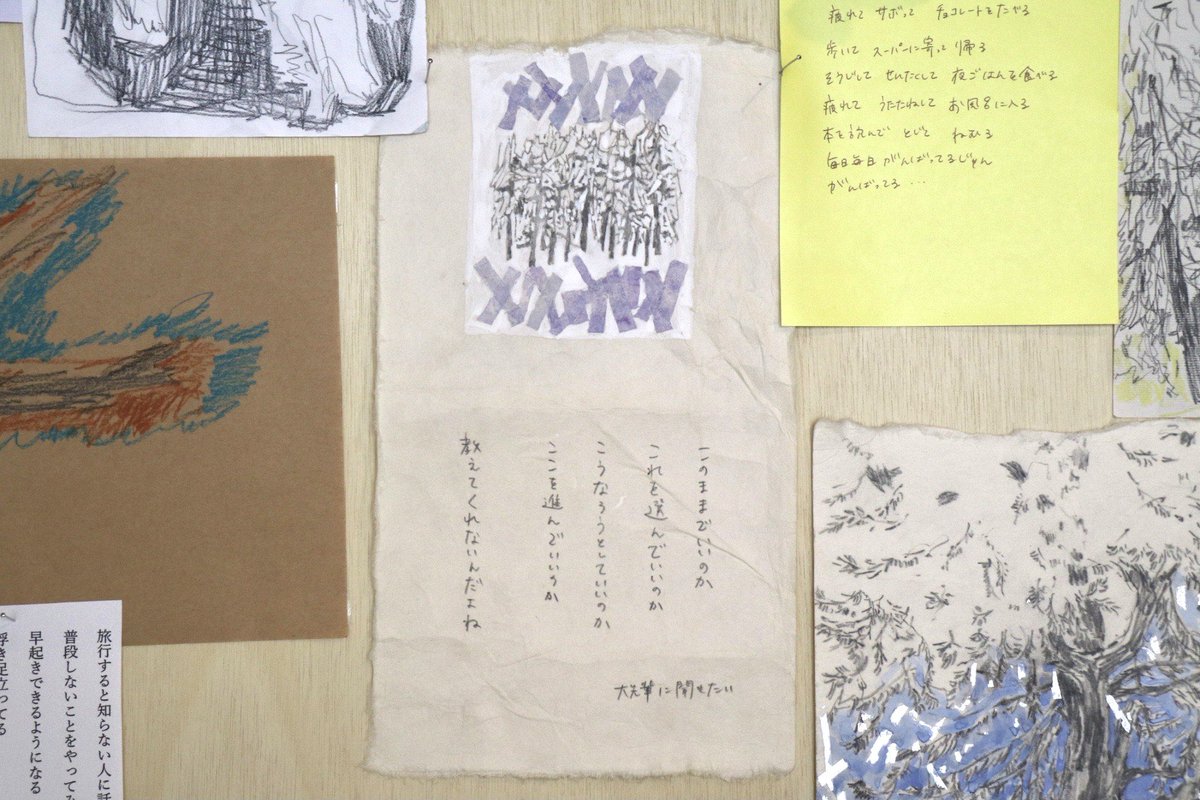 疲れて サボって チョコレートをたべる
歩いて スーパーに寄って 帰る
そうじして せんたくして 夜ごはんを食べる
疲れて うたたねして お風呂に入る
本を読んで とじて ねむる
毎日毎日がんばってるじゃん
がんばってる…
このままでいいのか
これを選んでいいのか
こうなろうとしていいのか
ここを進んでいいのか
教えてくれないんだよね
大先輩に聞きたい
旅行すると知らない人に話
普段しないことをやってみ
早起きできるようになる
浮き足立ってる